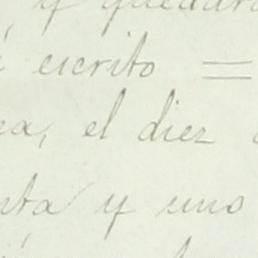 y quedar
escrito =
el diez
y uno